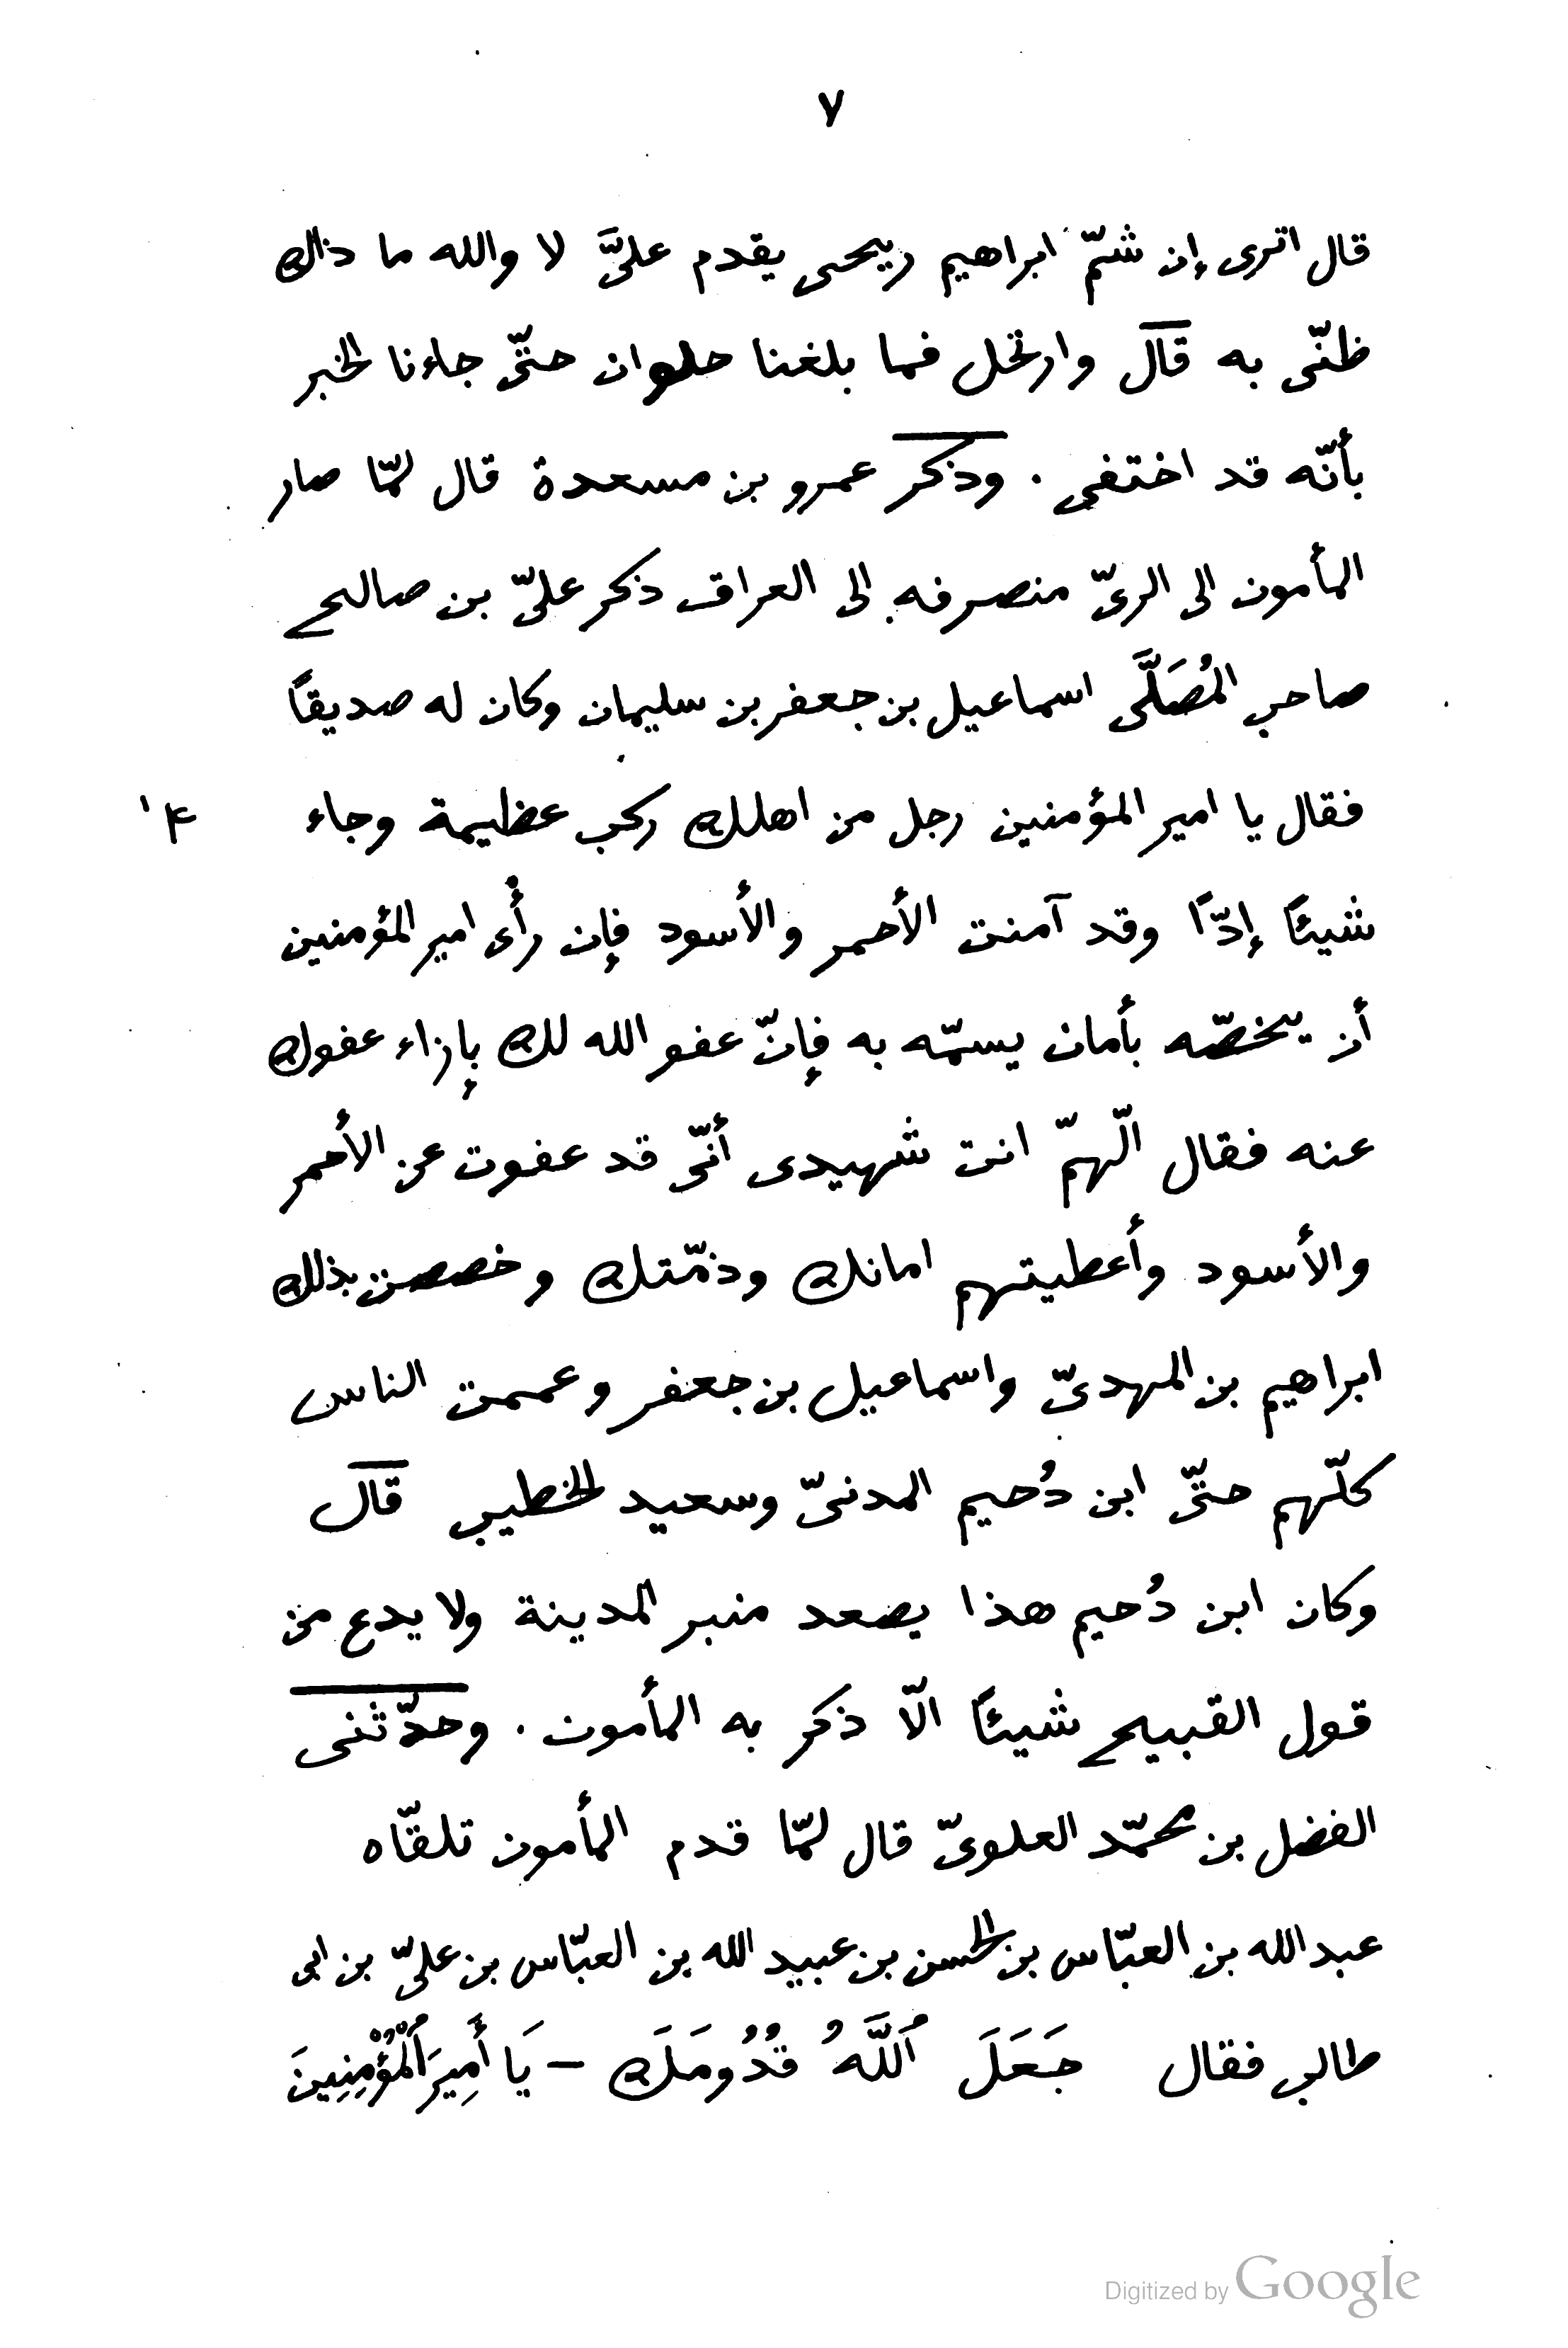 ٧
قال اترى إن شمّ ابراهيم ريحى يقدم علىَّ لا والله ما ذاك
ظنّى به قال وارتحل فما بلغنا حلوان حتّى جاءنا الخبر
بأنّه قد اختفى . وذكر عمرو بن مسعدة قال لمّا صار
المأمون الى الرىّ منصرفه الى العراق ذكر علىّ بن صالح
صاحب المُصَلَّى اسماعيل بن جعفر بن سليمان وكان له صديقًا
فقال يا امير المؤمنين رجل من اهلك ركب عظيمة وجاء ٤ا
شيئًا إدّا وقد آمنت الأحمر والأسود فإن رأى امير المؤمنين
أن يخصّه بأمان يسمّه به فإنّ عفو الله لك بإزاء عفوك
عنه فقال الّلهمّ انت شهيدى أنّى قد عفوت عن الأحمر
والأسود وأعطيتهم امانك وذمّتك وخصصت بذلك
ابراهيم بن المهدىّ واسماعيل بن جعفر وعممت الناس
كلّهم حتّى ابن دُحيم المدنىّ وسعيد الخطيب قال
وكان ابن دُحيم هذا يصعد منبر المدينة ولا يدع من
قول القبيح شيئًا الّا ذكر به المأمون . وحدّثنى
الفضل بن محمّد العلوىّ قال لمّا قدم المأمون تلقّاه
عبد الله بن العبّاس بن الحسن بن عبيد الله بن العبّاس بن علىّ بن ابى
طالب فقال جَعَلَ ٱللَّهُ قُدُومَكَ – يَا أَمِيرَ ٱلْمُؤْمِنِينَ
Digitized by Google